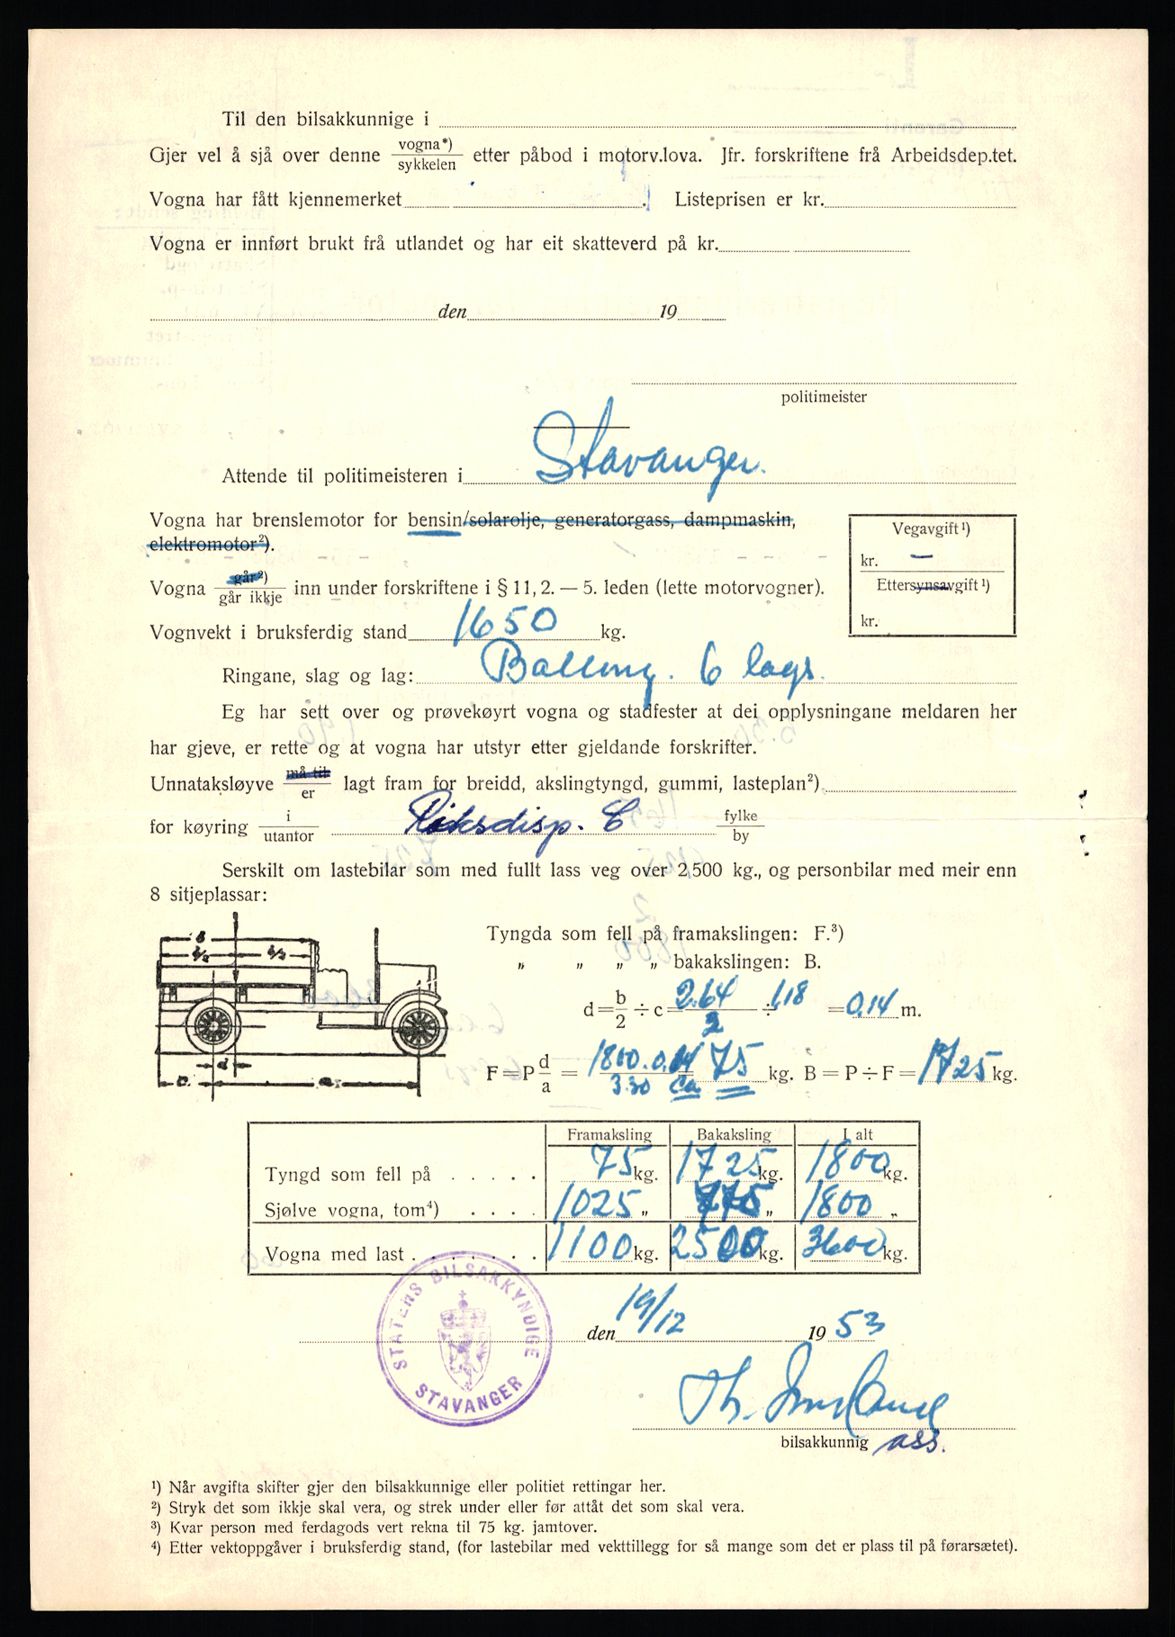 Til den bilsakkunnige i
Gjer vel å sjå over denne vogna*) sykkelen etter påbod i motorv.lova. Jfr. forskriftene frå Arbeidsdep.tet.
Vogna har fått kjennemerket . Listeprisen er kr.
Vogna er innført brukt frå utlandet og har eit skatteverd på kr.
den 19
politimeister
Attende til politimeisteren i Stavanger.
Vogna har brenslemotor for bensin/solarolje, generatorgass, dampmaskin,
elektromotor²).
Vogna går²) går ikkje inn under forskriftene i § 11, 2. — 5. leden (lette motorvogner).
Vegavgift ¹)
kr. —
Ettersynsavgift ¹)
kr.
Vognvekt i bruksferdig stand 1650 kg.
Ringane, slag og lag: Ballong. 6 lags.
Eg har sett over og prøvekøyrt vogna og stadfester at dei opplysningane meldaren her
har gjeve, er rette og at vogna har utstyr etter gjeldande forskrifter.
Unnataksløyve må til er lagt fram for breidd, akslingtyngd, gummi, lasteplan²)
for køyring i utantor Riksdisp. C fylke by
Serskilt om lastebilar som med fullt lass veg over 2,500 kg., og personbilar med meir enn
8 sitjeplassar:
b
b/2 b/2
d
c a
Tyngda som fell på framakslingen: F.³)
„ „ „ „ bakakslingen: B.
d = b/2 ÷ c = 2.64/2 ÷ 1,18 = 0,14 m.
F = P d/a = 1800.0,14/3.30 = ca 75 kg. B = P ÷ F = 1725 kg.
Framaksling Bakaksling I alt
Tyngd som fell på . . . . . 75 kg. 1725 kg. 1800 kg.
Sjølve vogna, tom⁴) . . . . 1025 „ 775 „ 1800 „
Vogna med last . . . . . . . 1100 kg. 2500 kg. 3600 kg.
STATENS BILSAKKYNDIGE STAVANGER
den 19/12 19 53
bilsakkunnig ass.
¹) Når avgifta skifter gjer den bilsakkunnige eller politiet rettingar her.
²) Stryk det som ikkje skal vera, og strek under eller før attåt det som skal vera.
³) Kvar person med ferdagods vert rekna til 75 kg. jamtover.
⁴) Etter vektoppgåver i bruksferdig stand, (for lastebilar med vekttillegg for så mange som det er plass til på førarsætet).